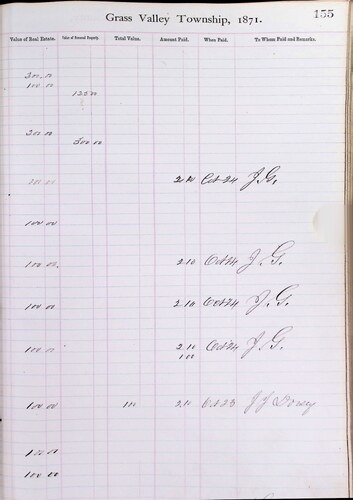 Grass Valley Township, 1871.
155
Value of Real Estate. Value of Personal Property. Total Value. Amount Paid. When Paid. To Whom Paid and Remarks.
300.00
100 00
125 00
200 00
500 00
100 00 2.10 Oct 24 J. G.
100 00
100 00. 2.10 Oct 24 J. G.
100 00 2.10 Oct 24 J. G.
100 00 2.10 Oct 24 J. G.
1 00
100 00 100 2.10 Oct 23 J J
100 00
100 00